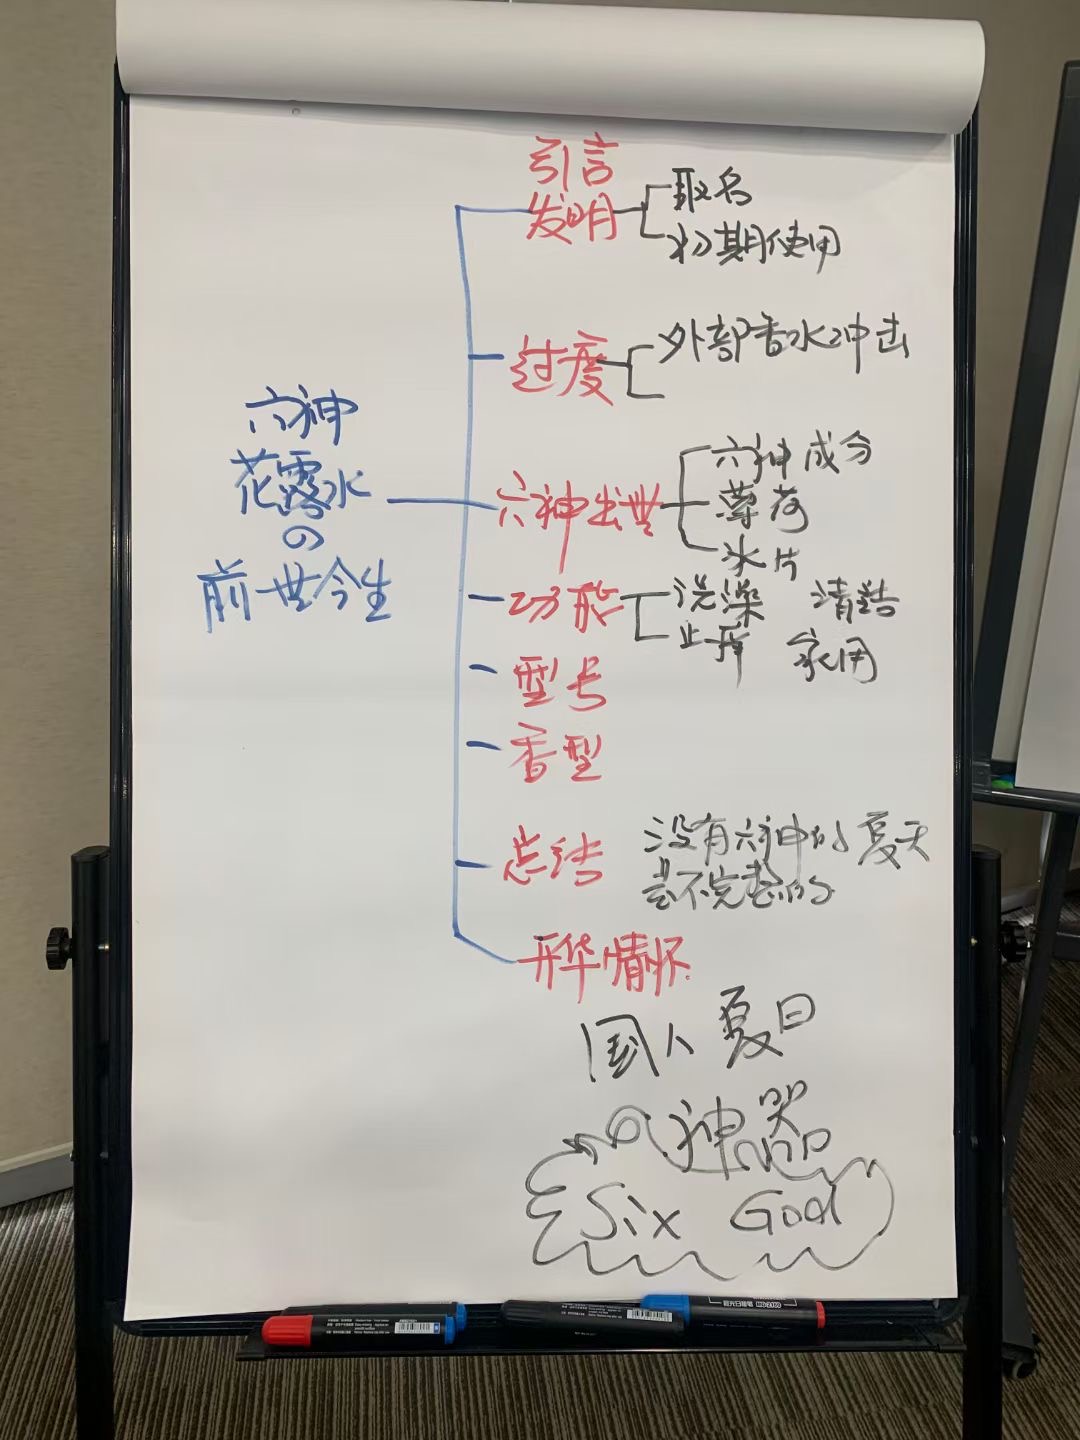 引言
发明
取名
初期使用
过度
外部香水冲击
六神
花露水
の
前世今生
六神出世
六神成分
薄荷
冰片
功能
洗澡 清洁
止痒 家用
型号
香型
总结
没有六神的夏天
是不完整的
升华情怀
国人夏日
の神器
Six God